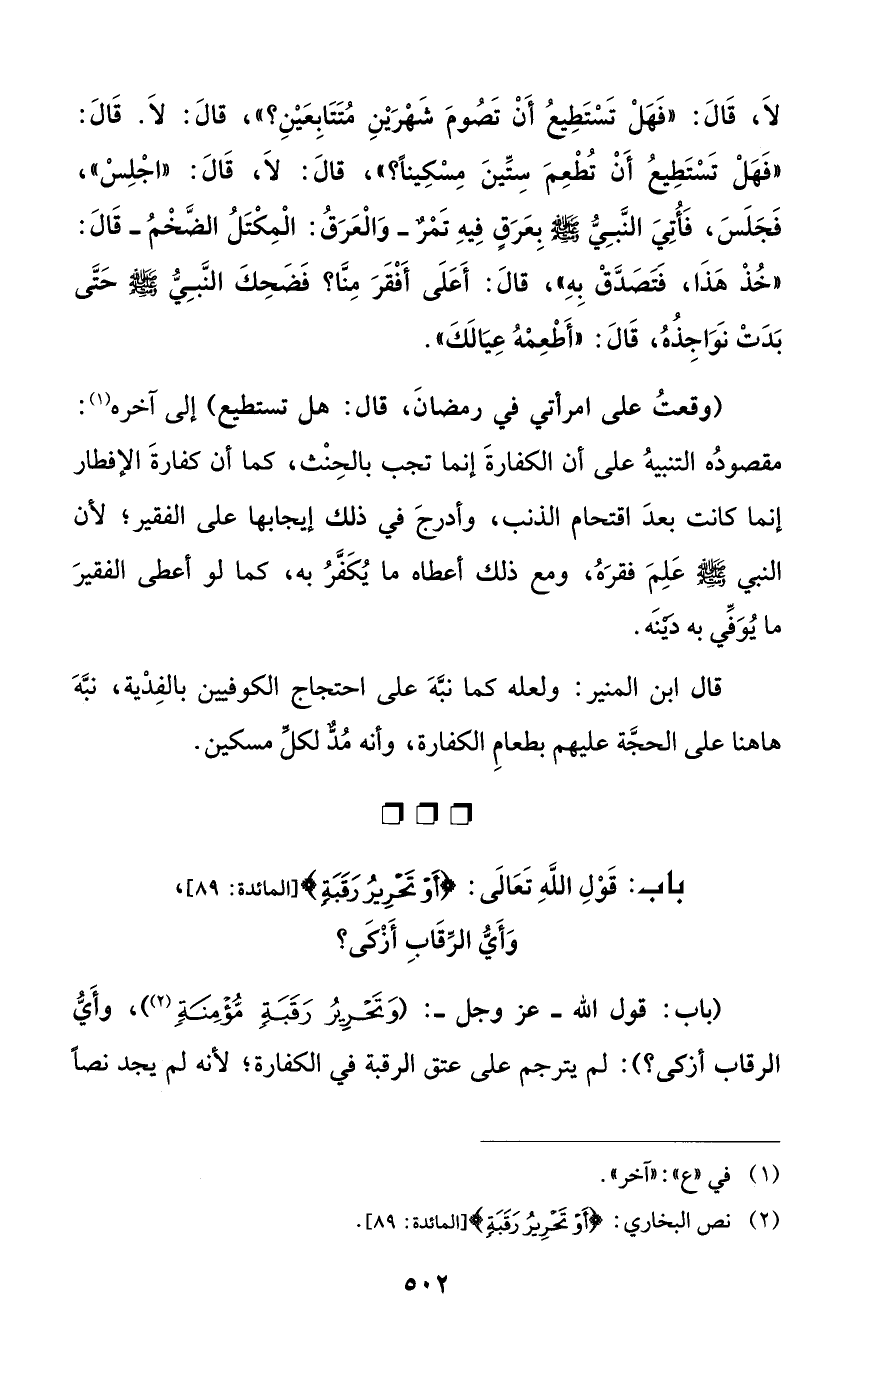 لاَ، قَالَ: «فَهَلْ تَسْتَطِيعُ أَنْ تَصُومَ شَهْرَيْنِ مُتَتَابِعَيْنِ؟»، قَالَ: لاَ. قَالَ:
«فَهَلْ تَسْتَطِيعُ أَنْ تُطْعِمَ سِتِّينَ مِسْكِيناً؟»، قَالَ: لاَ، قَالَ: «اجْلِسْ»،
فَجَلَسَ، فَأُتِيَ النَّبِيُّ ﷺ بِعَرَقٍ فِيهِ تَمْرٌ ـ وَالْعَرَقُ: الْمِكْتَلُ الضَّخْمُ ـ قَالَ:
«خُذْ هَذَا، فَتَصَدَّقْ بِهِ»، قَالَ: أَعَلَى أَفْقَرَ مِنَّا؟ فَضَحِكَ النَّبِيُّ ﷺ حَتَّى
بَدَتْ نَوَاجِذُهُ، قَالَ: «أَطْعِمْهُ عِيَالَكَ».
(وقعتُ على امرأتي في رمضانَ، قال: هل تستطيع) إلى آخره(١):
مقصودُه التنبيهُ على أن الكفارةَ إنما تجب بالحِنْث، كما أن كفارةَ الإفطار
إنما كانت بعدَ اقتحام الذنب، وأدرجَ في ذلك إيجابها على الفقير؛ لأن
النبي ﷺ عَلِمَ فقرَهُ، ومع ذلك أعطاه ما يُكَفَّرُ به، كما لو أعطى الفقيرَ
ما يُوَفِّي به دَيْنَه.
قال ابن المنير: ولعله كما نبَّهَ على احتجاج الكوفيين بالفِدْية، نبَّهَ
هاهنا على الحجَّة عليهم بطعامِ الكفارة، وأنه مُدٌّ لكلِّ مسكين.
❒ ❒ ❒
باب: قَوْلِ اللَّهِ تَعَالَى: ﴿أَوْ تَحْرِيرُ رَقَبَةٍ﴾[المائدة: ٨٩]،
وَأَيُّ الرِّقَابِ أَزْكَى؟
(باب: قول الله ـ عز وجل ـ: (وَتَحْرِيرُ رَقَبَةٍ مُّؤْمِنَةٍ(٢))، وأَيُّ
الرقاب أزكى؟): لم يترجم على عتق الرقبة في الكفارة؛ لأنه لم يجد نصاً
(١) في «ع»: «آخر».
(٢) نص البخاري: ﴿أَوْ تَحْرِيرُ رَقَبَةٍ﴾[المائدة: ٨٩].
٥٠٢